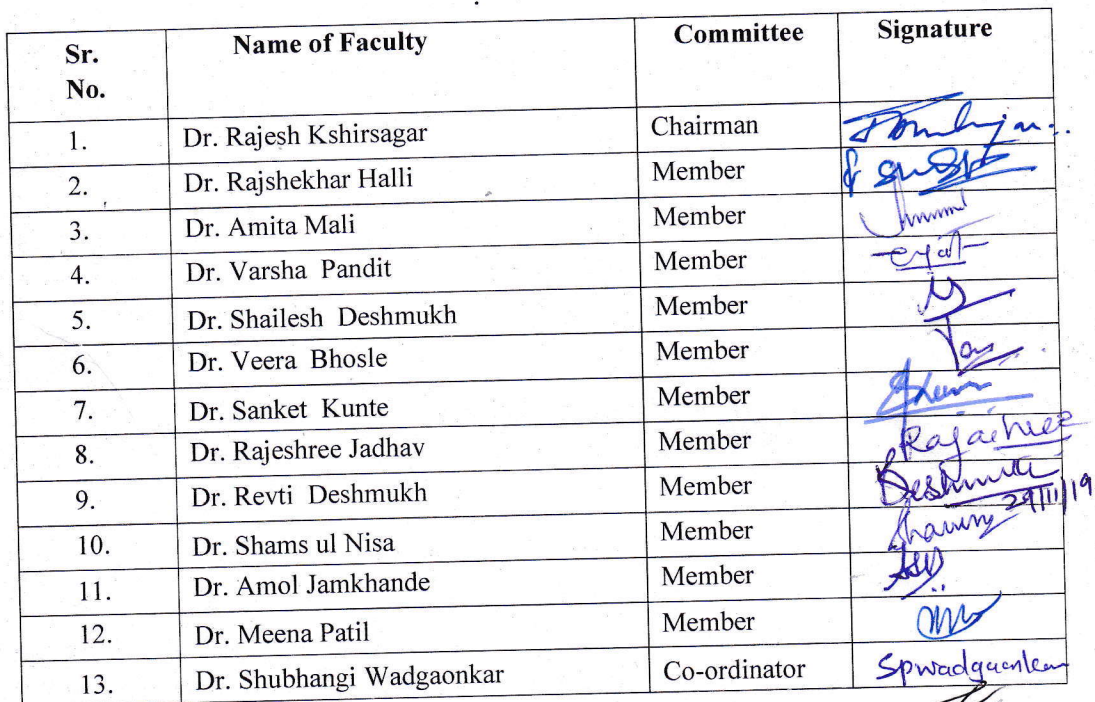 Sr. No. Name of Faculty Committee Signature
1. Dr. Rajesh Kshirsagar Chairman
2. Dr. Rajshekhar Halli Member
3. Dr. Amita Mali Member
4. Dr. Varsha Pandit Member
5. Dr. Shailesh Deshmukh Member
6. Dr. Veera Bhosle Member
7. Dr. Sanket Kunte Member
8. Dr. Rajeshree Jadhav Member
9. Dr. Revti Deshmukh Member Deshmukh 29/11/19
10. Dr. Shams ul Nisa Member
11. Dr. Amol Jamkhande Member
12. Dr. Meena Patil Member
13. Dr. Shubhangi Wadgaonkar Co-ordinator Spwadgaonkar